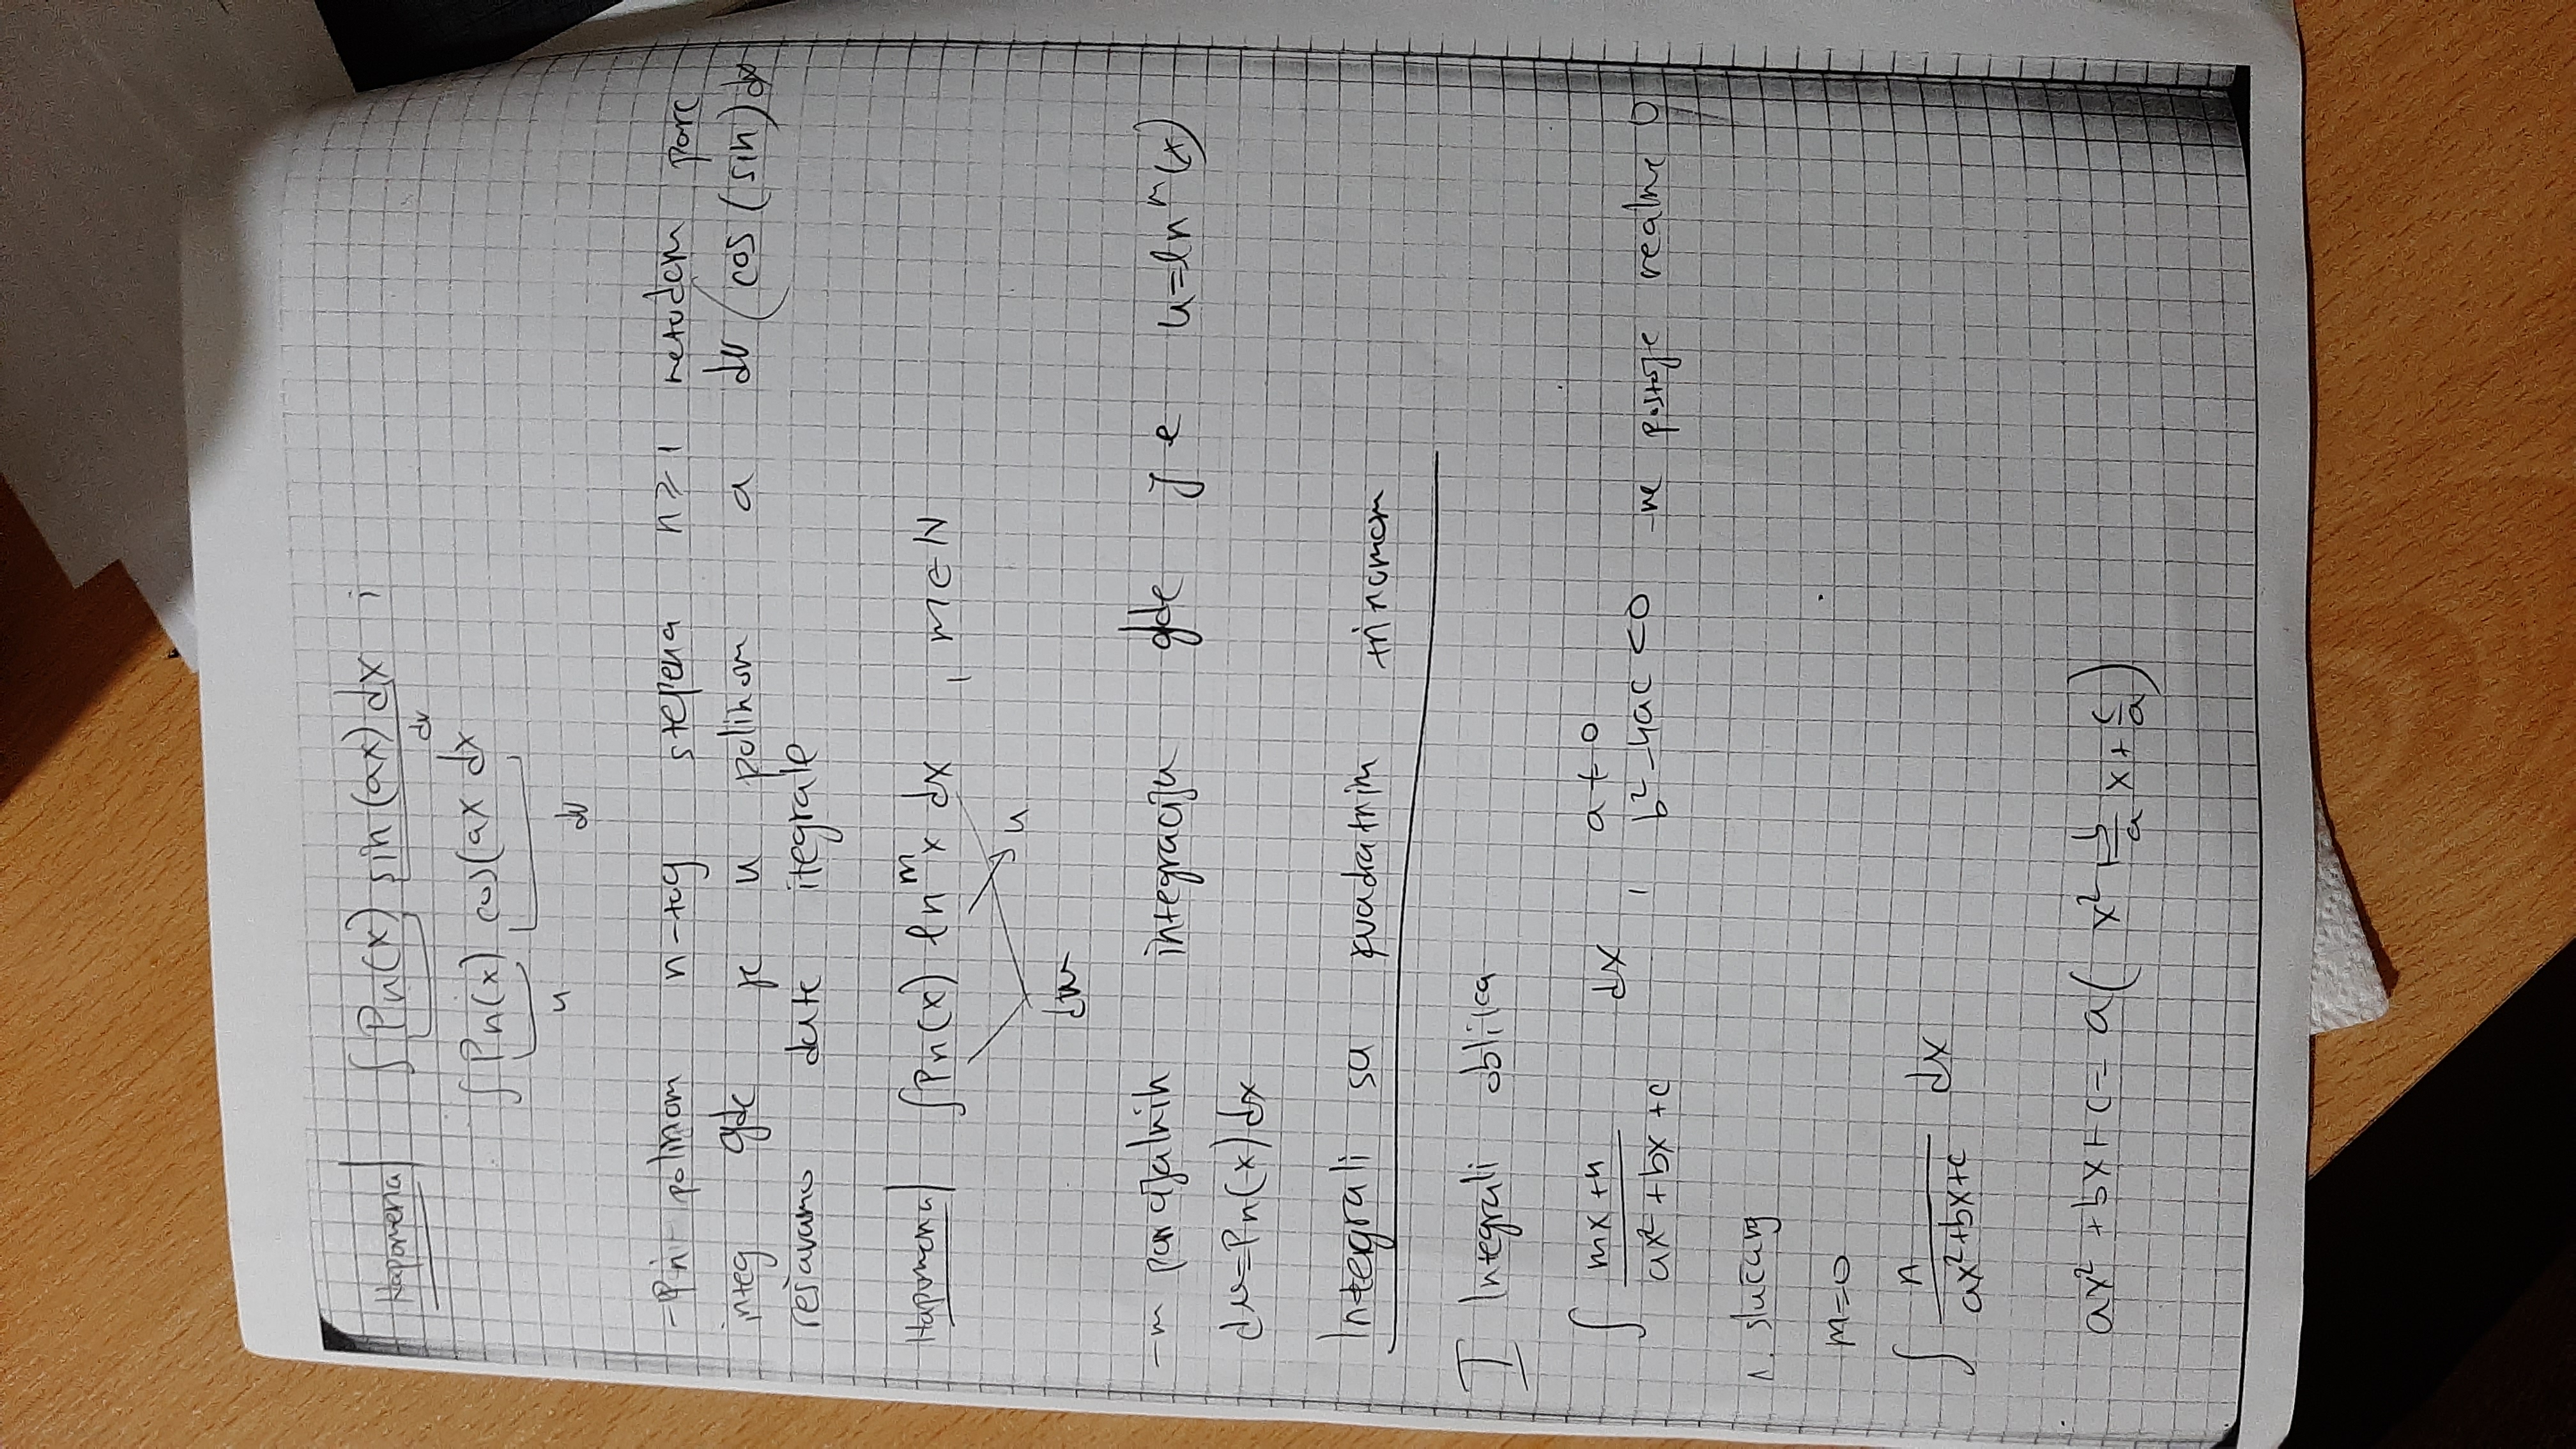 Napomena ∫ Pn(x) sin(ax) dx i
dv
∫ Pn(x) cos(ax dx
u dv
-Pn- polinom n-tog stepena n≥1 metodom parc
integ gde je u polinom a dv (cos (sin) dx
rešavamo date itegrale
Napomena ∫Pn(x) ln^m x dx , m∈N
u
dv
-m parcijalnih integracija gde je u=ln^m(x)
dv=Pn(x)dx
Integrali sa kvadratnim trinomom
I Integrali oblika
∫ (mx+n)/(ax²+bx+c) dx , a≠0
b²-4ac<0 -ne postoje realne 0
1. slučaj
m=0
∫ n/(ax²+bx+c) dx
ax²+bx+c= a( x²+b/a x+c/a)